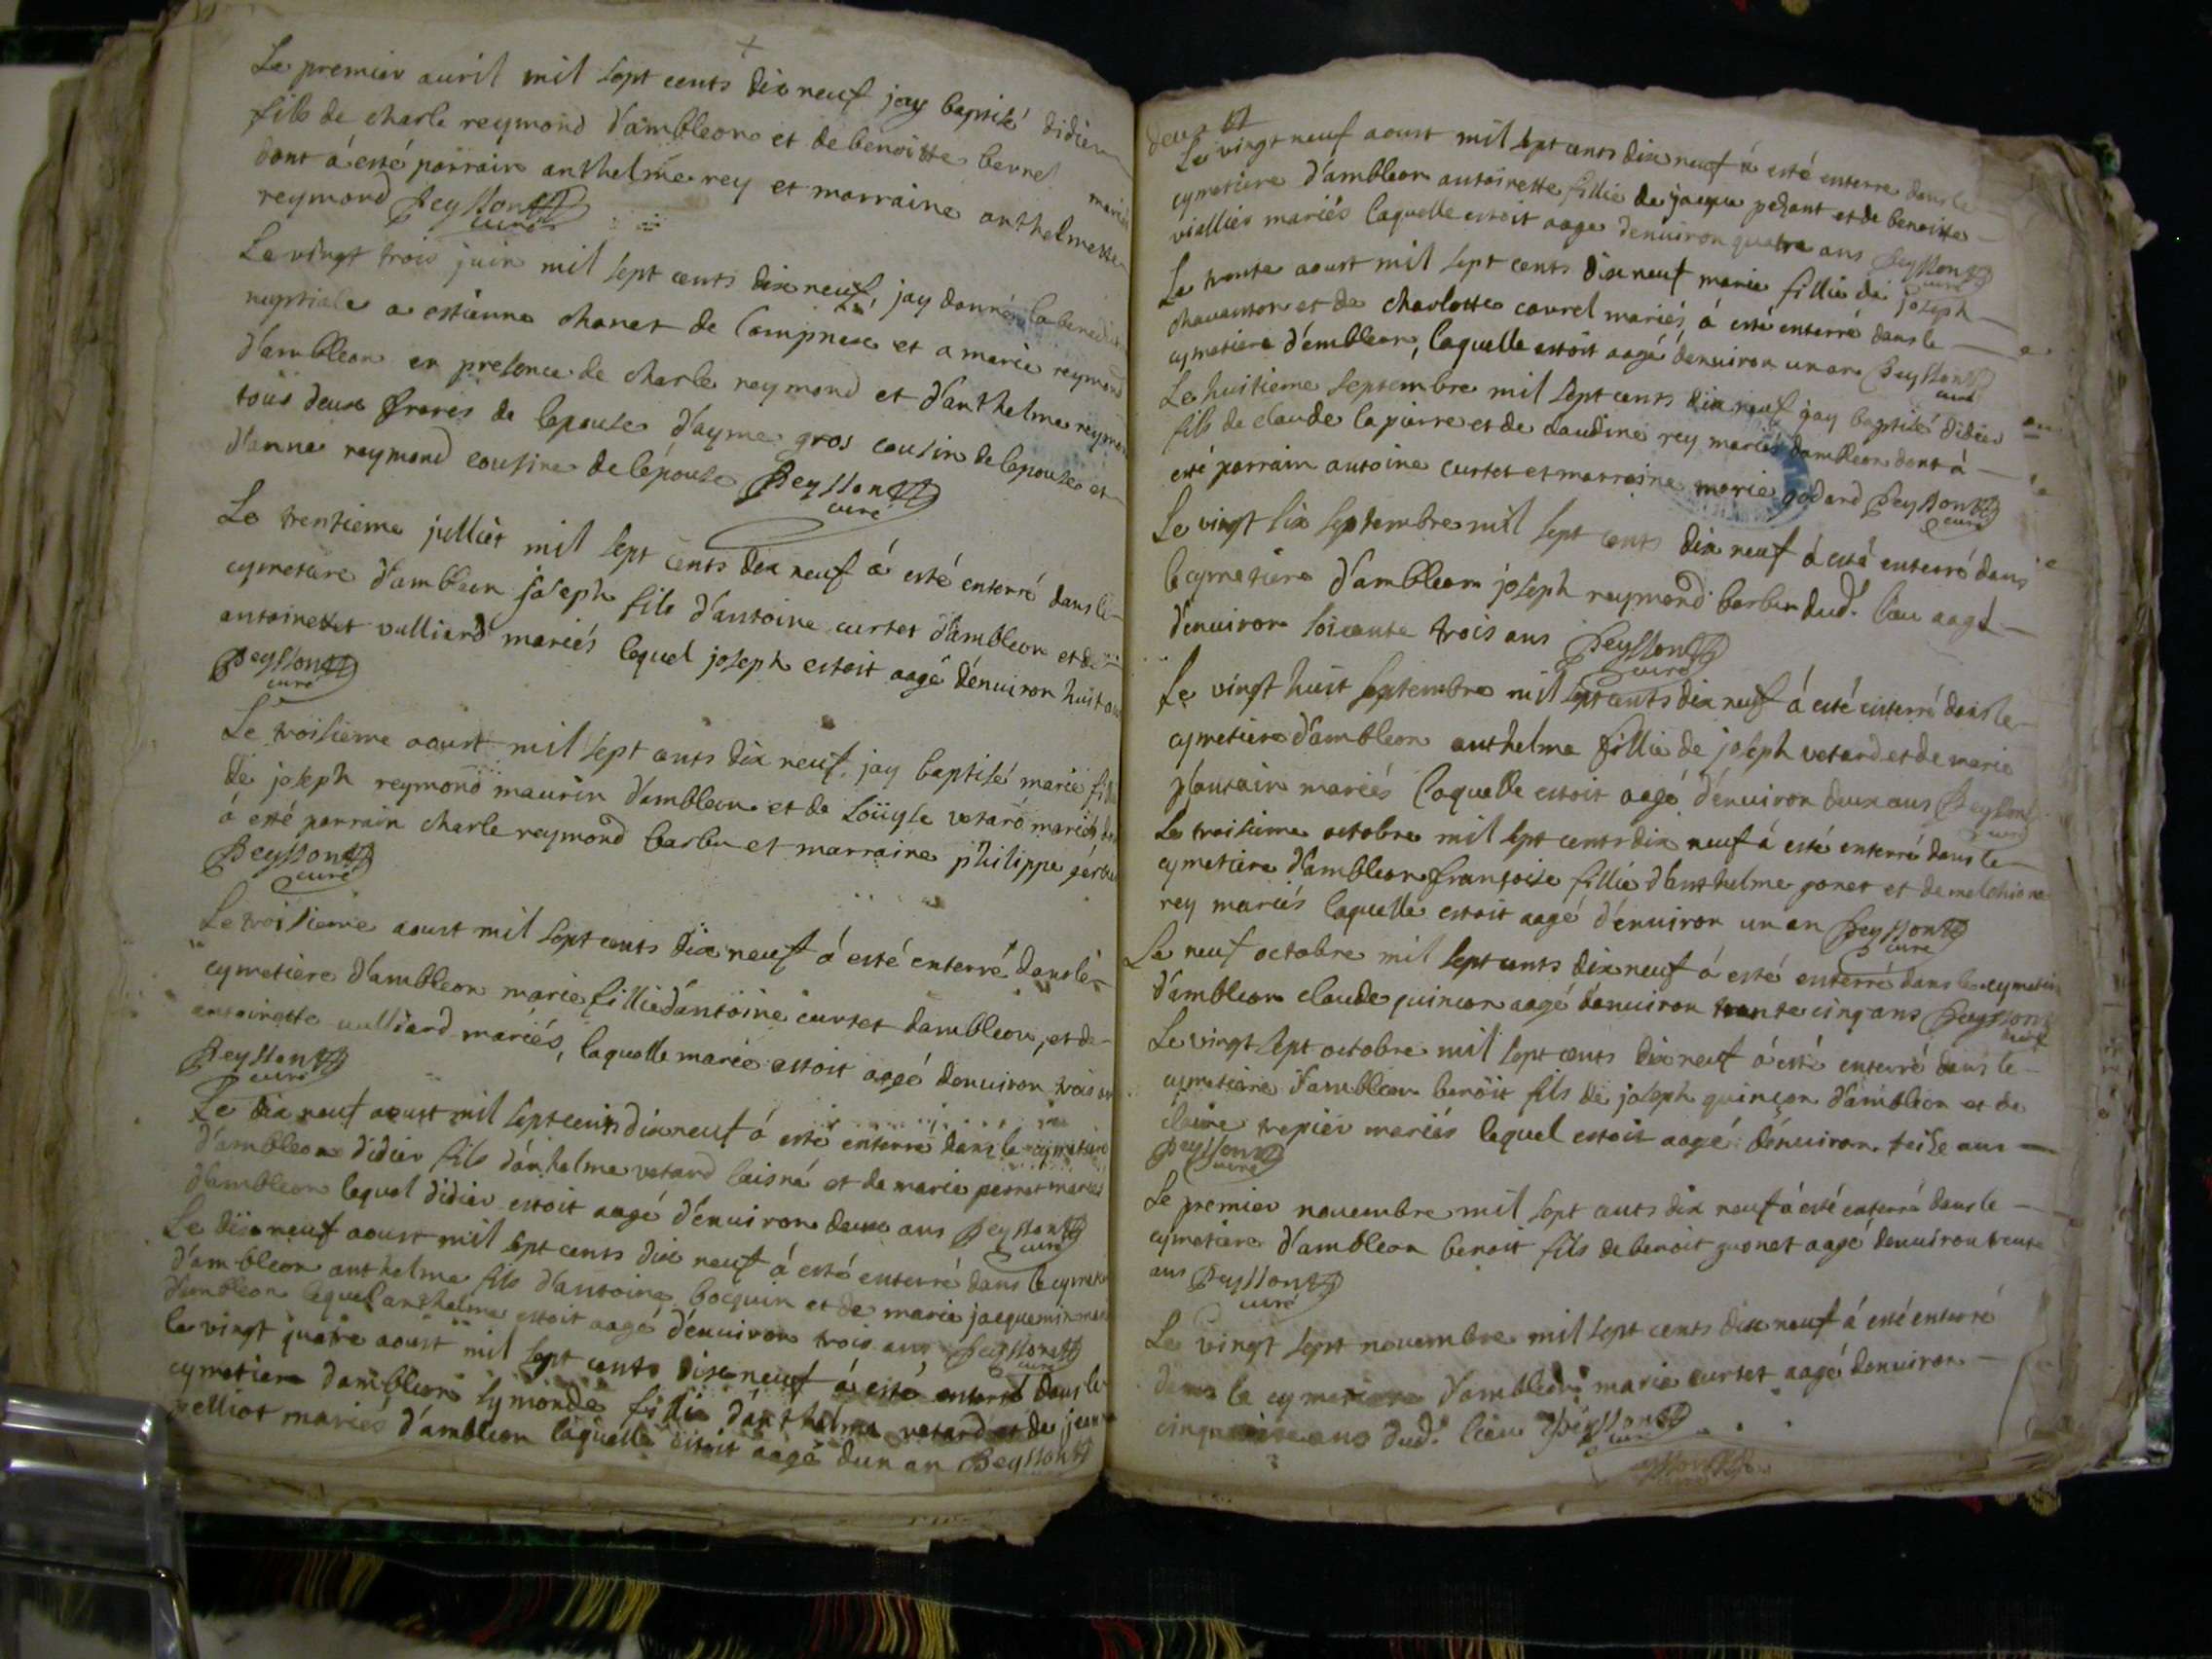 Le premier auril mil sept cents dix neuf jay baptisé didier
fils de charle reymond d'ambleon et de benoitte berrel mariés
dont á esté parrain anthelme rey et marraine anthelmette
reymond Peysson
curé
Le vingt trois juin mil sept cents dix neuf, jay donné la benedi
nuptiale a estienne chanet de Compnex et a marie reymond
d'ambleon en presence de charle reymond et d'anthelme reymon
tous deux freres de lepouse d'ayme gros cousin de lepouse et
d'anne reymond cousine de lépouse Peysson
curé
Le trentieme jullièt mil sept cents dix neuf á esté enterré dans le
cymetiere d'ambleon joseph fils d'antoine curtet d'ambleon et de
antoinettet vulliard mariés lequel joseph estoit aagé dénuiron huit ans
Peysson
curé
Le troisieme aoust mil sept cents dix neuf, jay baptisé marie fil
de joseph reymond maurin d'ambleon et de Loüyse vetard mariés, d
á esté parrain charle reymond barbu et marraine philippe gerbe
Peysson
curé
Le troisieme aoust mil sept cents dix neuf á esté enterré dans le
cymetiere d'ambleon marie fillie d'antoine curtet dambleon, et de
antoinette vulliard mariés, laquelle marie estoit aagé denuiron trois an
Peysson
curé
Le dix neuf aoust mil sept cents dix neuf á esté enterré dans le cymetiere
d'ambleon didier fils d'anthelme vetard laisné et de marie perret mariés
d'ambleon lequel didier estoit aagé d'enuiron deux ans Peysson
curé
Le dix neuf aoust mil sept cents dix neuf á esté enterré dans le cymetie
d'ambleon anthelme fils d'antoine bocquin et de marie jacquemin mar
d'ambleon lequel anthelme estoit aagé d'énuiron trois ans Peysson
curé
le vingt quatre aoust mil sept cents dix neuf á esté enterré dans le
cymetiere d'ambleon symonde fillie d'anthelme vetard et de jean
pelliot mariés d'ambleon laquelle estoit aagé dun an Peysson
deux
Le vingt neuf aoust mil sept cents dix neuf á esté enterre dans le
cymetiere d'ambleon antoinette fillie de jacque pezant et de benoitte
viallies mariés laquelle estoit aage denuiron quatre ans Peysson
curé
Le trente aoust mil sept cents dix neuf marie fillie de joseph
chavanton et de charlotte courel mariés, á esté enterré dans le
cymetiere d'embleon, laquelle estoit aagé denuiron un an Peysson
curé
Le huitieme septembre mil sept cents dix neuf jay baptisé didier
fils de claude lapierre et de claudine rey mariés dambleon dont á
esté parrain antoine curtet et marraine marie godard Peysson
curé
Le vingt six septembre mil sept cents dix neuf á esté enterré dans
le cymetiere d'ambleon joseph reymond barbu dud. lieu aagé
d'enuiron soixante trois ans Peysson
curé
Le vingt huit septembre mil sept cents dix neuf á esté enterré dans le
cymetiere d'ambleon anthelme fillie de joseph vetard et de marie
plantain mariés laquelle estoit aagé d'énuiron deux ans Peysson
curé
Le troisieme octobre mil sept cents dix neuf á esté enterré dans le
cymetiere d'ambleon françoise fillie d'anthelme gonet et de melchione
rey mariés laquelle estoit aagé d'énuiron un an Peysson
curé
Le neuf octobre mil sept cents dix neuf á esté enterré dans le cymetier
d'ambleon claude quincon aagé d'enuiron trente cinq ans Peysson
curé
Le vingt sept octobre mil sept cents dix neuf á esté enterré dans le
cymetiere d'ambleon benoit fils de joseph quinçon d'ambleon et de
claire trepier mariés lequel estoit aagé dénuiron seise ans
Peysson
curé
Le premier nouembre mil sept cents dix neuf á esté enterré dans le
cymetiere d'ambleon benoit fils de benoit guonet aagé denuiron trente
ans Peysson
curé
Le vingt sept nouembre mil sept cents dix neuf á esté enterré
dans le cymetiere d'ambleon marie curtet aagé denuiron
ans dud. lieu Peysson
curé